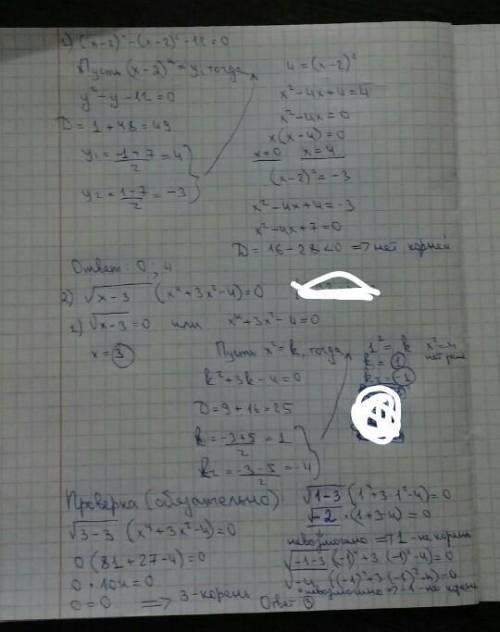 1) (x-2)⁴-(x-2)²-12=0
Пусть (x-2)²=y, тогда
y²-y-12=0
D=1+48=49
y₁=(1+7)/2=4
y₂=(1-7)/2=-3
4=(x-2)²
x²-4x+4=4
x²-4x=0
x(x-4)=0
x=0 x=4
(x-2)²=-3
x²-4x+4=-3
x²-4x+7=0
D=16-28<0 => нет корней
Ответ: 0, 4
2) √(x-3) (x⁴+3x²-4)=0
1) √(x-3)=0 или x⁴+3x²-4=0
x=3
Пусть x²=k, тогда
k²+3k-4=0
D=9+16=25
k₁=(-3+5)/2=1
k₂=(-3-5)/2=-4
Проверка (обязательно)
√(3-3) (x⁴+3x²-4)=0
0(81+27-4)=0
0·104=0
0=0 => 3-корень
√(1-3) (1⁴+3·1²-4)=0
√-2·(1+3-4)=0
невозможно => 1 - не корень
√(-1-3) ((-1)⁴+3·(-1)²-4)=0
√-4 ((-1)⁴+3·(-1)²-4)=0
невозможно => -1 - не корень
Ответ: 3